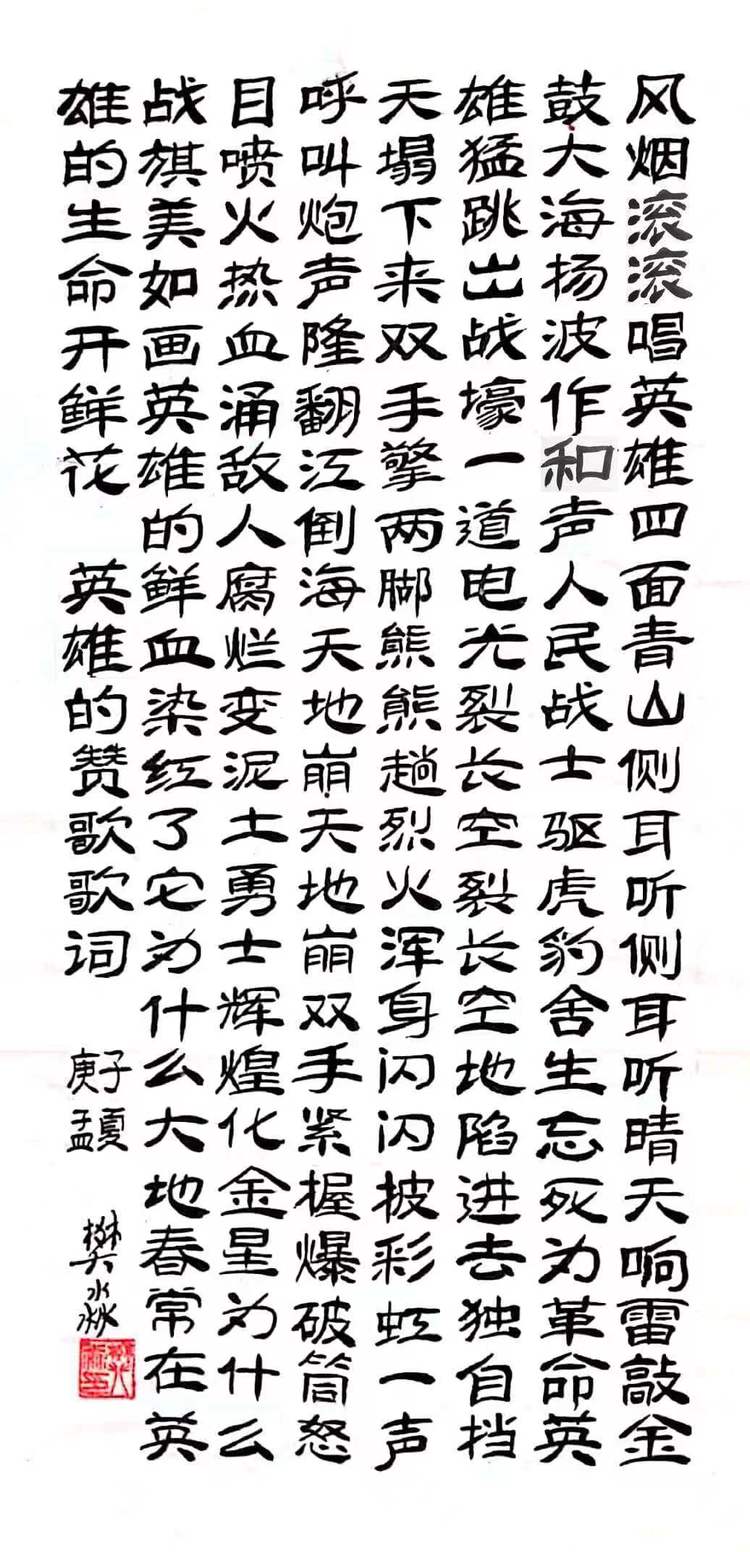 风烟滚滚唱英雄四面青山侧耳听侧耳听晴天响雷敲金
鼓大海扬波作和声人民战士驱虎豹舍生忘死为革命英
雄猛跳出战壕一道电光裂长空裂长空地陷进去独自挡
天塌下来双手擎两脚熊熊趟烈火浑身闪闪披彩虹一声
呼叫炮声隆翻江倒海天地崩天地崩双手紧握爆破筒怒
目喷火热血涌敌人腐烂变泥土勇士辉煌化金星为什么
战旗美如画英雄的鲜血染红了它为什么大地春常在英
雄的生命开鲜花 英雄的赞歌歌词
庚子
孟夏
樊淼